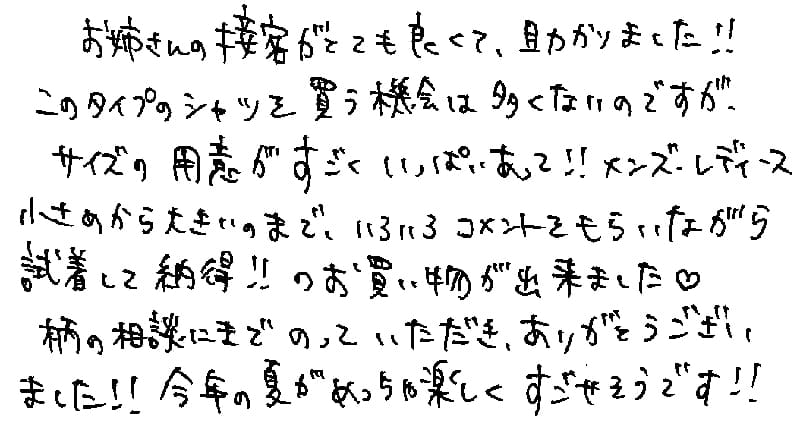 お姉さんの接客がとても良くて、助かりました!!
このタイプのシャツを買う機会は多くないのですが、
サイズの用意がすごくいっぱいあって!!メンズ・レディース
小さめから大きいのまで、いろいろコメントをもらいながら
試着して納得!!のお買い物が出来ました♡
柄の相談にまでのっていただき、ありがとうござい
ました!!今年の夏がめっちゃ楽しくすごせそうです!!